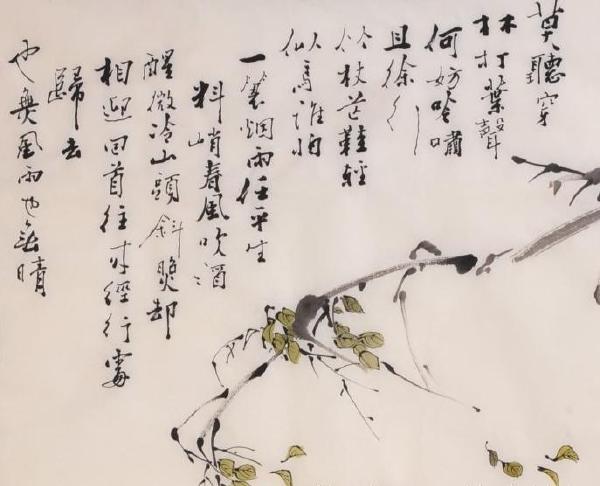 莫聽穿
林打葉聲
何妨吟嘯
且徐行
竹杖芒鞋輕
似馬誰怕
一蓑烟雨任平生
料峭春風吹酒
醒微冷山頭斜却
相迎回首往來經行處
歸去
也無風雨也無晴